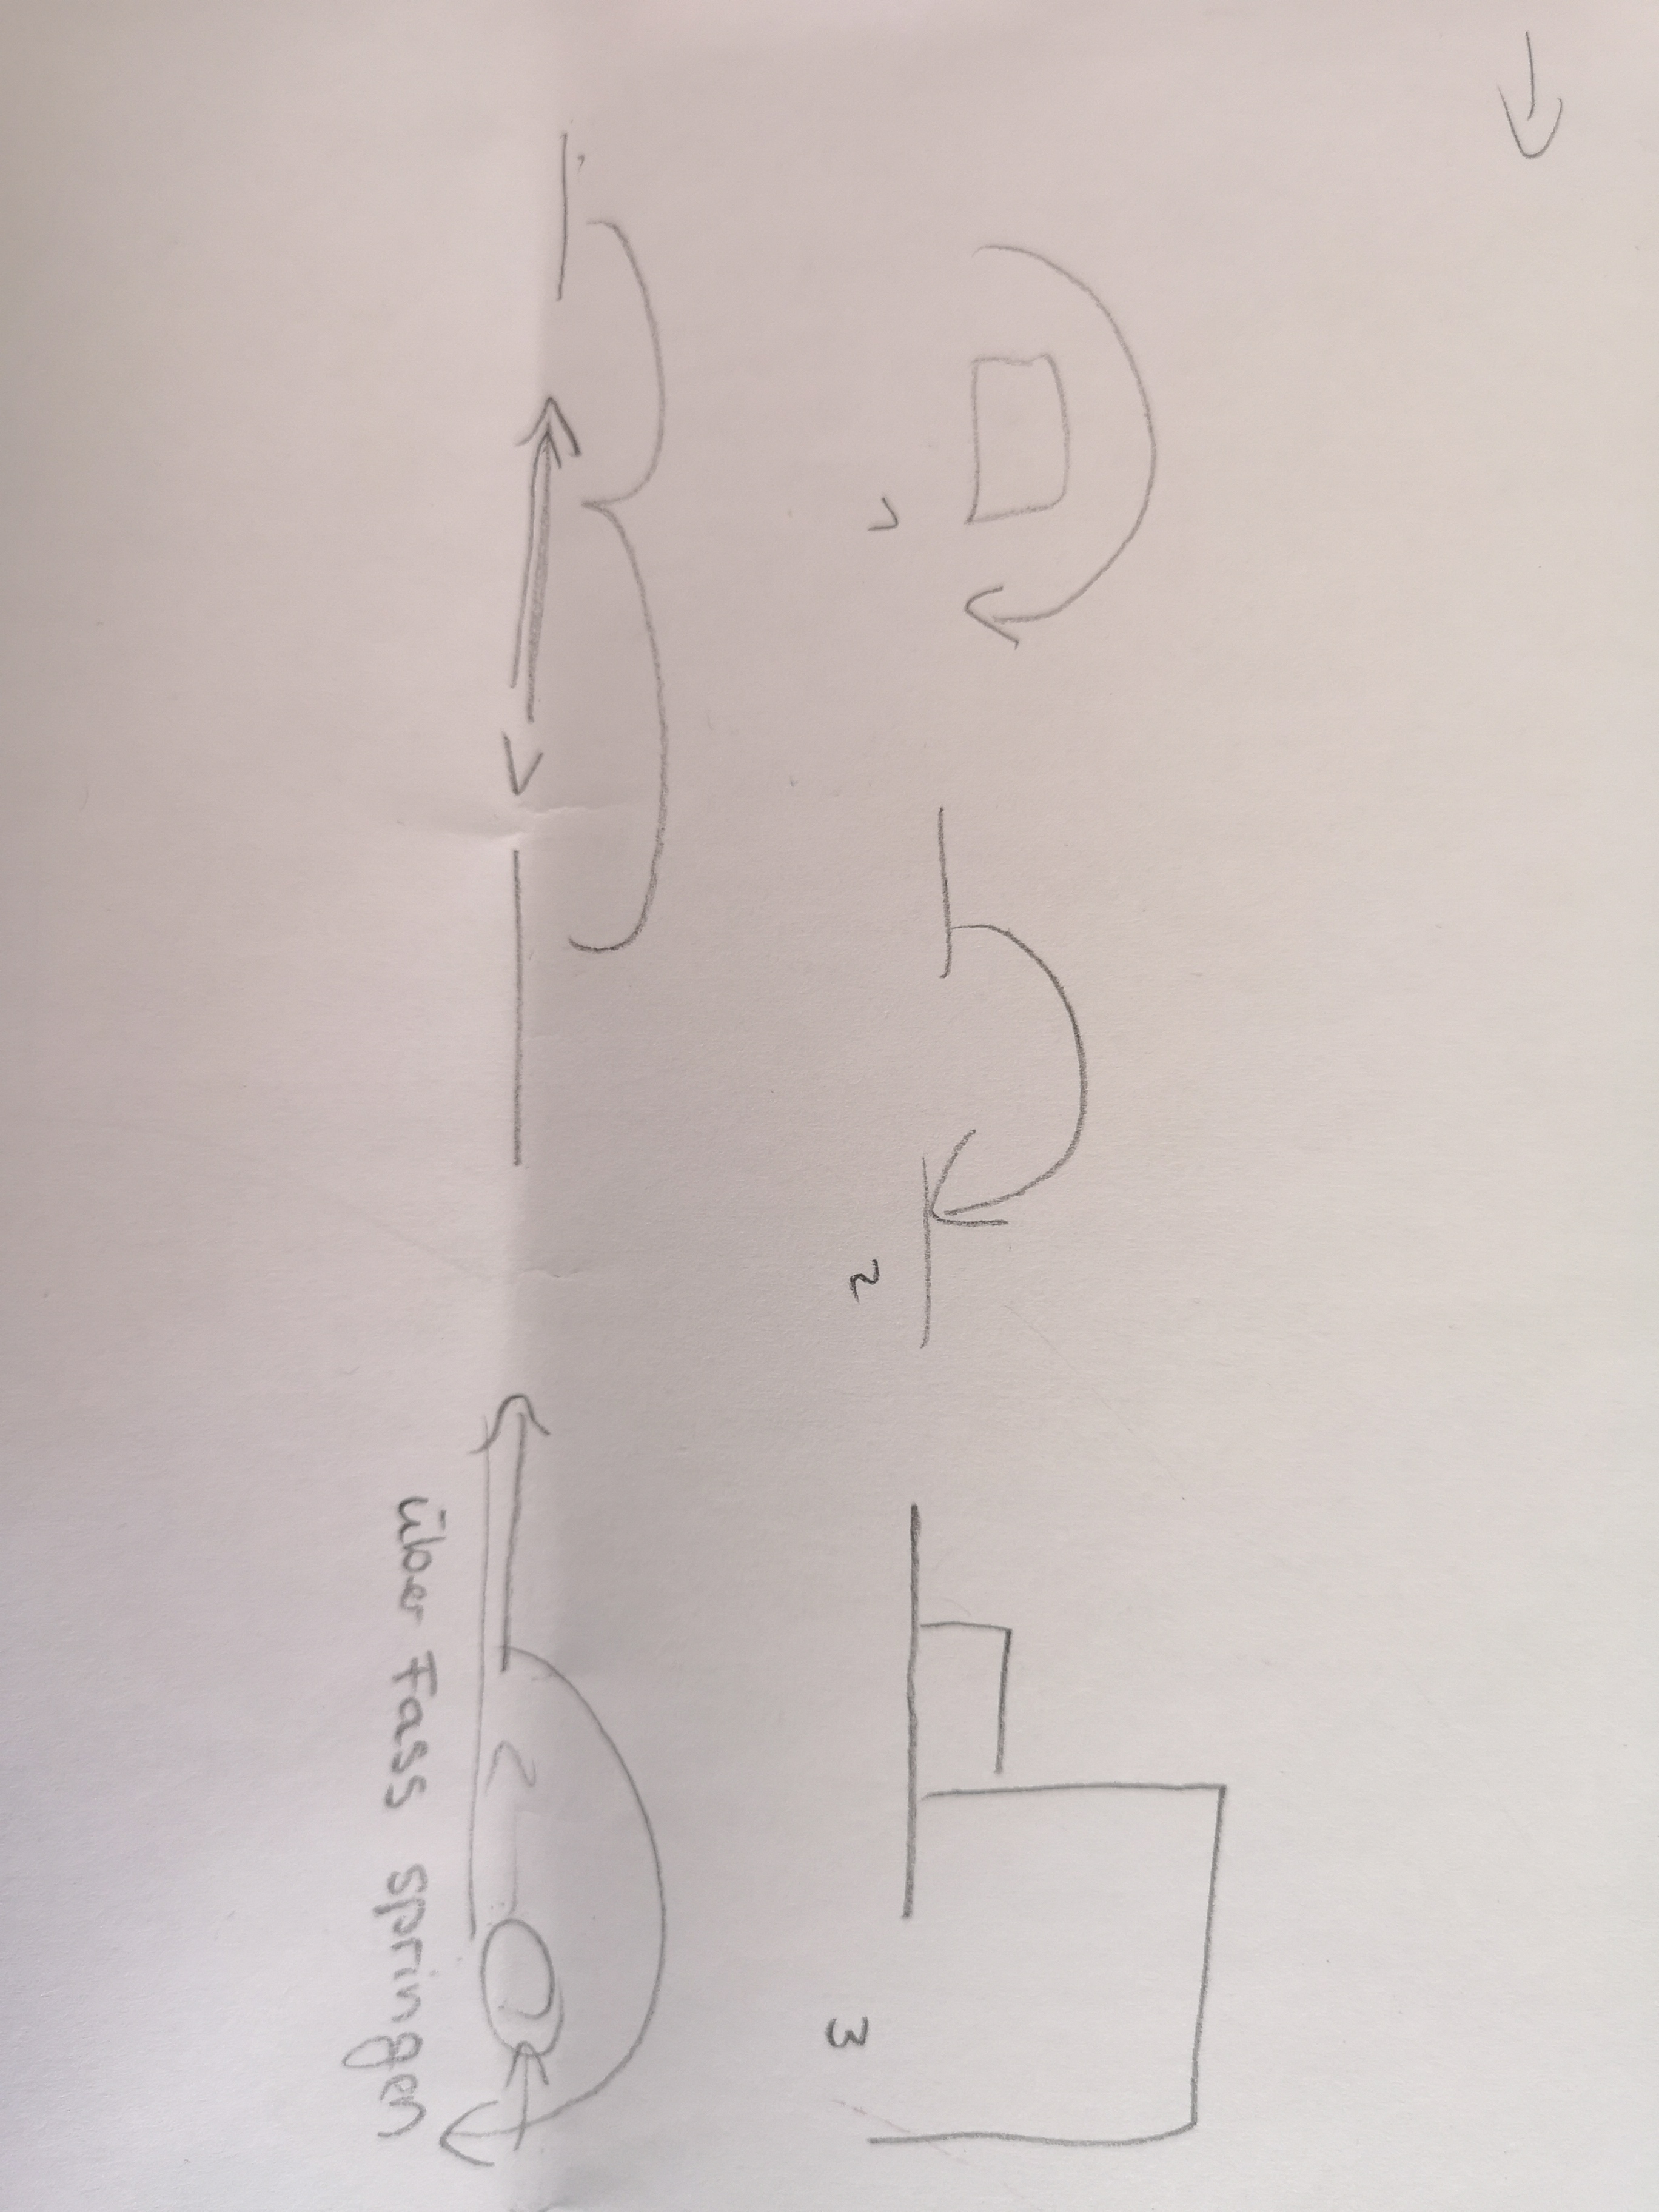 1
2
3
über Fass springen